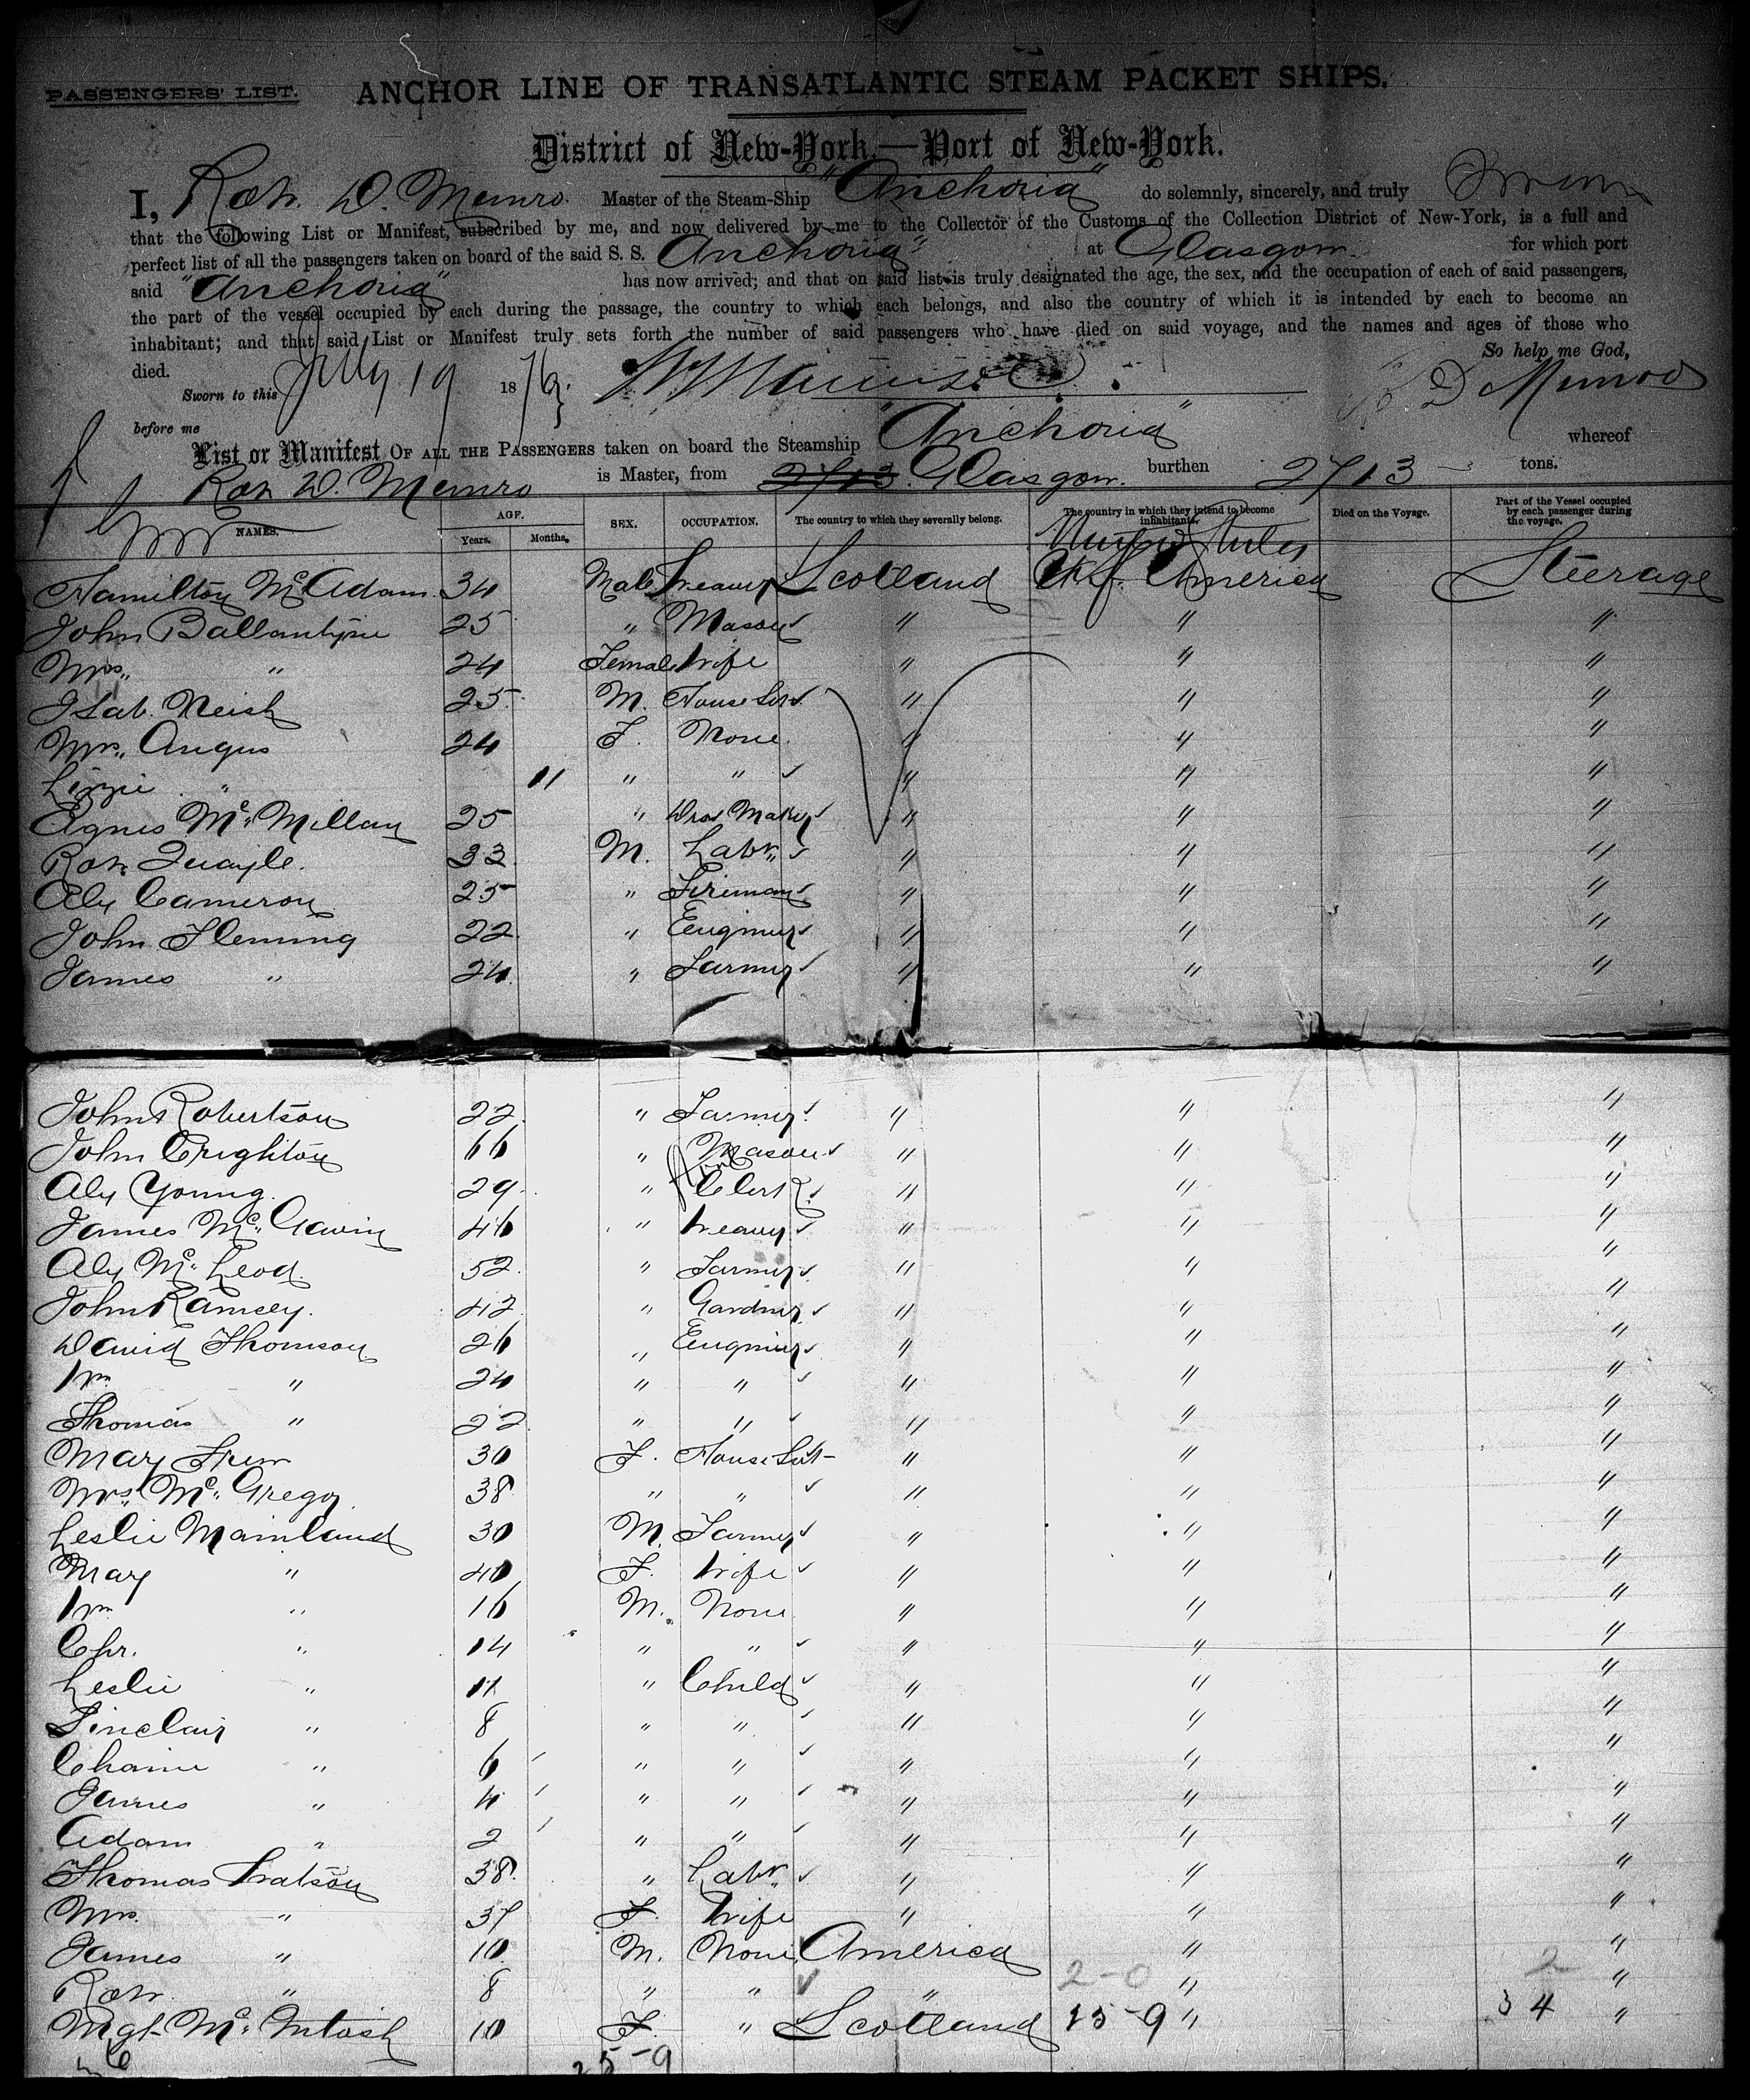 PASSENGERS' LIST. ANCHOR LINE OF TRANSATLANTIC STEAM PACKET SHIPS.
District of New-York,—Port of New-York.
I, Robt. D. Munro. Master of the Steam-Ship "Anchoria" do solemnly, sincerely, and truly swear
that the following List or Manifest, subscribed by me, and now delivered by me to the Collector of the Customs of the Collection District of New-York, is a full and
perfect list of all the passengers taken on board of the said S. S. Anchoria" at Glasgow. for which port
said "Anchoria" has now arrived; and that on said list is truly designated the age, the sex, and the occupation of each of said passengers,
the part of the vessel occupied by each during the passage, the country to which each belongs, and also the country of which it is intended by each to become an
inhabitant; and that said List or Manifest truly sets forth the number of said passengers who have died on said voyage, and the names and ages of those who
died. So help me God,
Sworn to this July 19 1876 D Munro
before me
List or Manifest OF ALL THE PASSENGERS taken on board the Steamship "Anchoria" whereof
Robt D. Munro is Master, from 2713 Glasgow. burthen 2713 tons.
NAMES. AGE. Years. Months. SEX. OCCUPATION. The country to which they severally belong. The country in which they intend to become inhabitants. Died on the Voyage. Part of the Vessel occupied by each passenger during the voyage.
United States
Hamilton McAdam. 34 Male Weaver Scotland U.S. America Steerage
John Ballantyne 25 " Mason " " "
Mrs. " 24 Female Wife " " "
Isab. Neish 25. M. House Servt " " "
Mrs. Angus 24 F. None. " " "
Lizzie " 11 " " " " "
Agnes McMillan 25 " Dress Maker " " "
Robt Quayle. 33 M. Labr. " " "
Alex Cameron 25 " Fireman " " "
John Fleming 22. " Engineer " " "
James " 24. " Farmer " " "
John Robertson 22. " Farmer " " "
John Crighton 66 " Mason " " "
Alex Young. 29. " Clerk " " "
James McGavin 46 " Weaver " " "
Alex McLeod. 52. " Farmer " " "
John Ramsey. 42. " Gardner " " "
David Thomson 26 " Engineer " " "
Wm " 24 " " " " "
Thomas " 22 " " " " "
Mary 30 F. House Servt " " "
Mrs. McGregor. 38 " " " " "
Leslie Mainland 30 M. Farmer " " "
Mary " 40 F. Wife " " "
Wm " 16 M. None " " "
Chr. " 14 " " " " "
Leslie " 11 " Child " " "
Sinclair " 8 " " " " "
" 6 " " " " "
James " 4 " " " " "
Adam " 2 " " " " "
Thomas Watson 38. " Labr. " " "
Mrs. " 37 F. Wife " " "
James " 10 M. None America " "
Robt. " 8 " " " 2-0 " 2 "
Mgt McIntosh 10 F. " Scotland 15-9 " 34 "
25-9